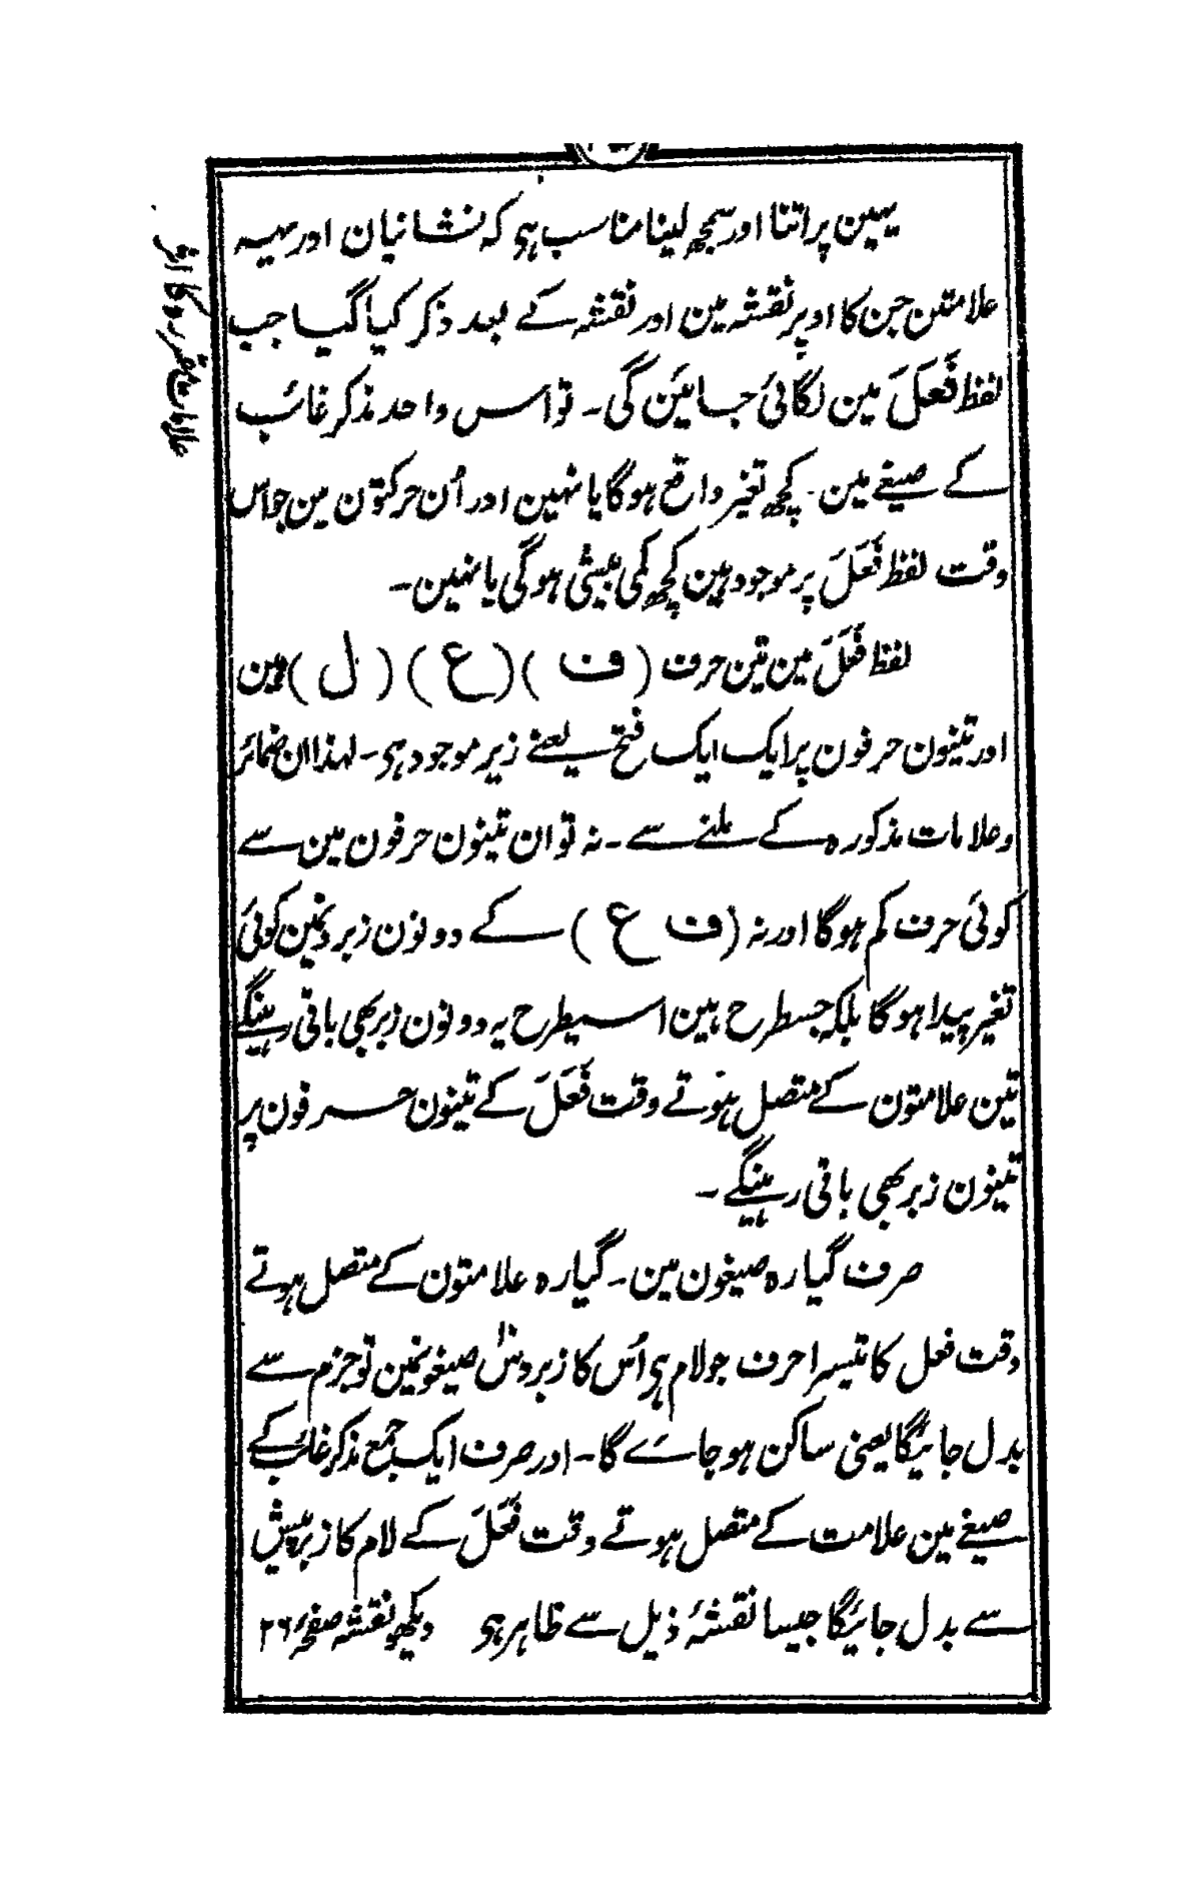 یہین پر اتنا اور سمجھ لینا مناسب ہی کہ نشانیان اور یہہ
علامتن جن کا اوپر نقشہ مین اور نقشہ کے بعد ذکر کیا گیا جب
لفظ فَعَلَ مین لگائی جائین گی۔ تو اس واحد مذکر غائب
کے صیغے مین۔ کچھ تغیر واقع ہوگا یا نہین اور اُن حرکتون مین جو اس
وقت لفظ فَعَلَ پر موجود ہین کچھ کمی بیشی ہوگی یا نہین۔
لفظ فَعَلَ مین تین حرف (ف) (ع) (ل) ہین
اور تینون حرفون پر ایک ایک فتح یعنے زبر موجود ہی۔ لہذا ان ضمائر
وعلامات مذکورہ کے ملنے سے۔ نہ تو ان تینون حرفون مین سے
کوئی حرف کم ہوگا اور نہ (ف ع) کے دونون زبرونمین کوئی
تغیر پیدا ہوگا بلکہ جسطرح ہین اسیطرح یہ دونون زبر بھی باقی رہینگے
تین علامتون کے متصل ہوتے وقت فَعَلَ کے تینون حرفون پر
تینون زبر بھی باقی رہینگے۔
صرف گیارہ صیغون مین۔ گیارہ علامتون کے متصل ہوتے
وقت فعل کا تیسرا حرف جو لام ہی اُس کا زبر دس صیغونمین تو جزم سے
بدل جائیگا یعنی ساکن ہو جاے گا۔ اور صرف ایک جمع مذکر غائب کے
صیغے مین علامت کے متصل ہوتے وقت فَعَلَ کے لام کا زبر پیش
سے بدل جائیگا جیسا نقشۂ ذیل سے ظاہر ہی دیکھو نقشہ صفحہ ۲۶